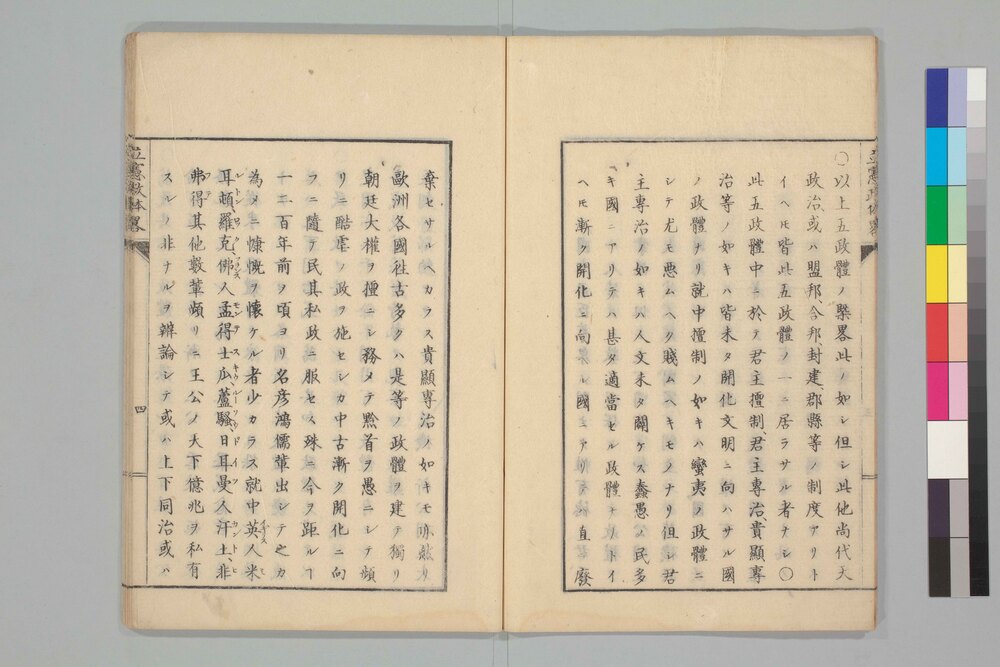 〇以上五政體ノ槩畧此ノ如シ但シ此他尚代天
政治或ハ盟邦、合邦、封建、郡縣等ノ制度アリト
イヘ𪜈皆此五政體ノ一ニ居ラサル者ナシ〇
此五政體中ニ於テ君主擅制、君主專治貴顯專
治等ノ如キハ皆未タ開化文明ニ向ハサル國
ノ政體ナリ就中擅制ノ如キハ蠻夷ノ政體ニ
シテ尤モ惡ムヘク賤ムヘキモノナリ但シ君
主專治ノ如キハ人文未タ闢ケス蠢愚ノ民多
キ國ニアリテハ甚タ適當セル政體ナリトイ
ヘ𪜈漸ク開化ニ向フレ國ニアリテハ直廢
棄セサルヘカラス貴顯專治ノ如キモ亦然リ
歐洲各國徃古多クハ是等ノ政體ヲ建テ獨リ
朝廷大權ヲ擅ニシ務メテ黔首ヲ愚ニシテ頻
リニ酷虐ノ政ヲ施セシカ中古漸ク開化ニ向
フニ隨テ民其私政ニ服セス殊ニ今ヲ距ルヿ
一二百年前ヲ頃ヨリ名彦鴻儒輩出シテ之カ
為メニ慷慨ヲ懷ケル者少カラス就中英人米
耳頓羅克、佛人孟得士瓜蘆騷日耳曼人汗土、非
弗得其他數輩頻リニ王公ノ天下億兆ヲ私有
スルノ非ナルヲ辨論シテ或ハ上下同治或ハ
立憲政体畧
四
立憲政体畧